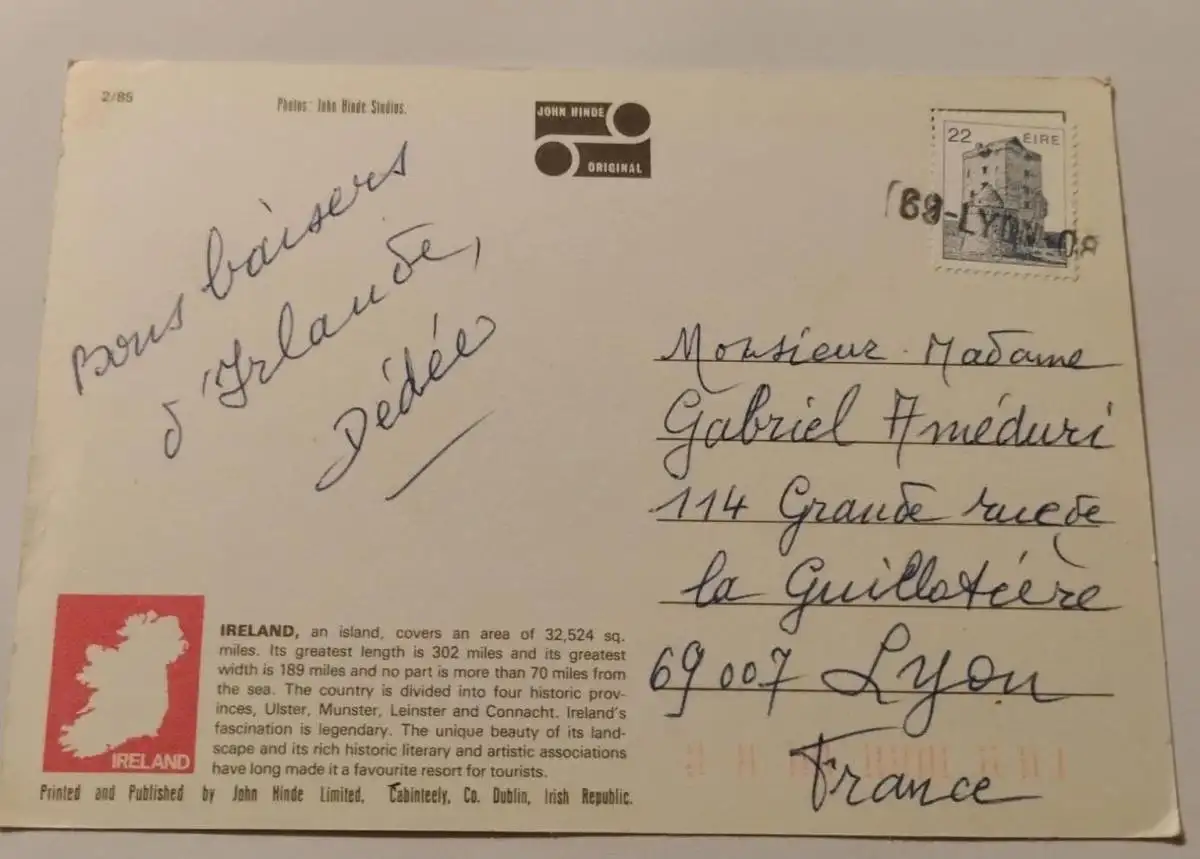 2/85
Photos: John Hinde Studios.
JOHN HINDE
ORIGINAL
22 ÉIRE
69-LYON-08
Bons baisers
d'Irlande,
Dédée
Monsieur Madame
Gabriel Améduri
114 Grande rue de
la Guillotière
69007 Lyon
France
IRELAND
IRELAND, an island, covers an area of 32,524 sq.
miles. Its greatest length is 302 miles and its greatest
width is 189 miles and no part is more than 70 miles from
the sea. The country is divided into four historic prov-
inces, Ulster, Munster, Leinster and Connacht. Ireland's
fascination is legendary. The unique beauty of its land-
scape and its rich historic literary and artistic associations
have long made it a favourite resort for tourists.
Printed and Published by John Hinde Limited, Cabinteely, Co. Dublin, Irish Republic.